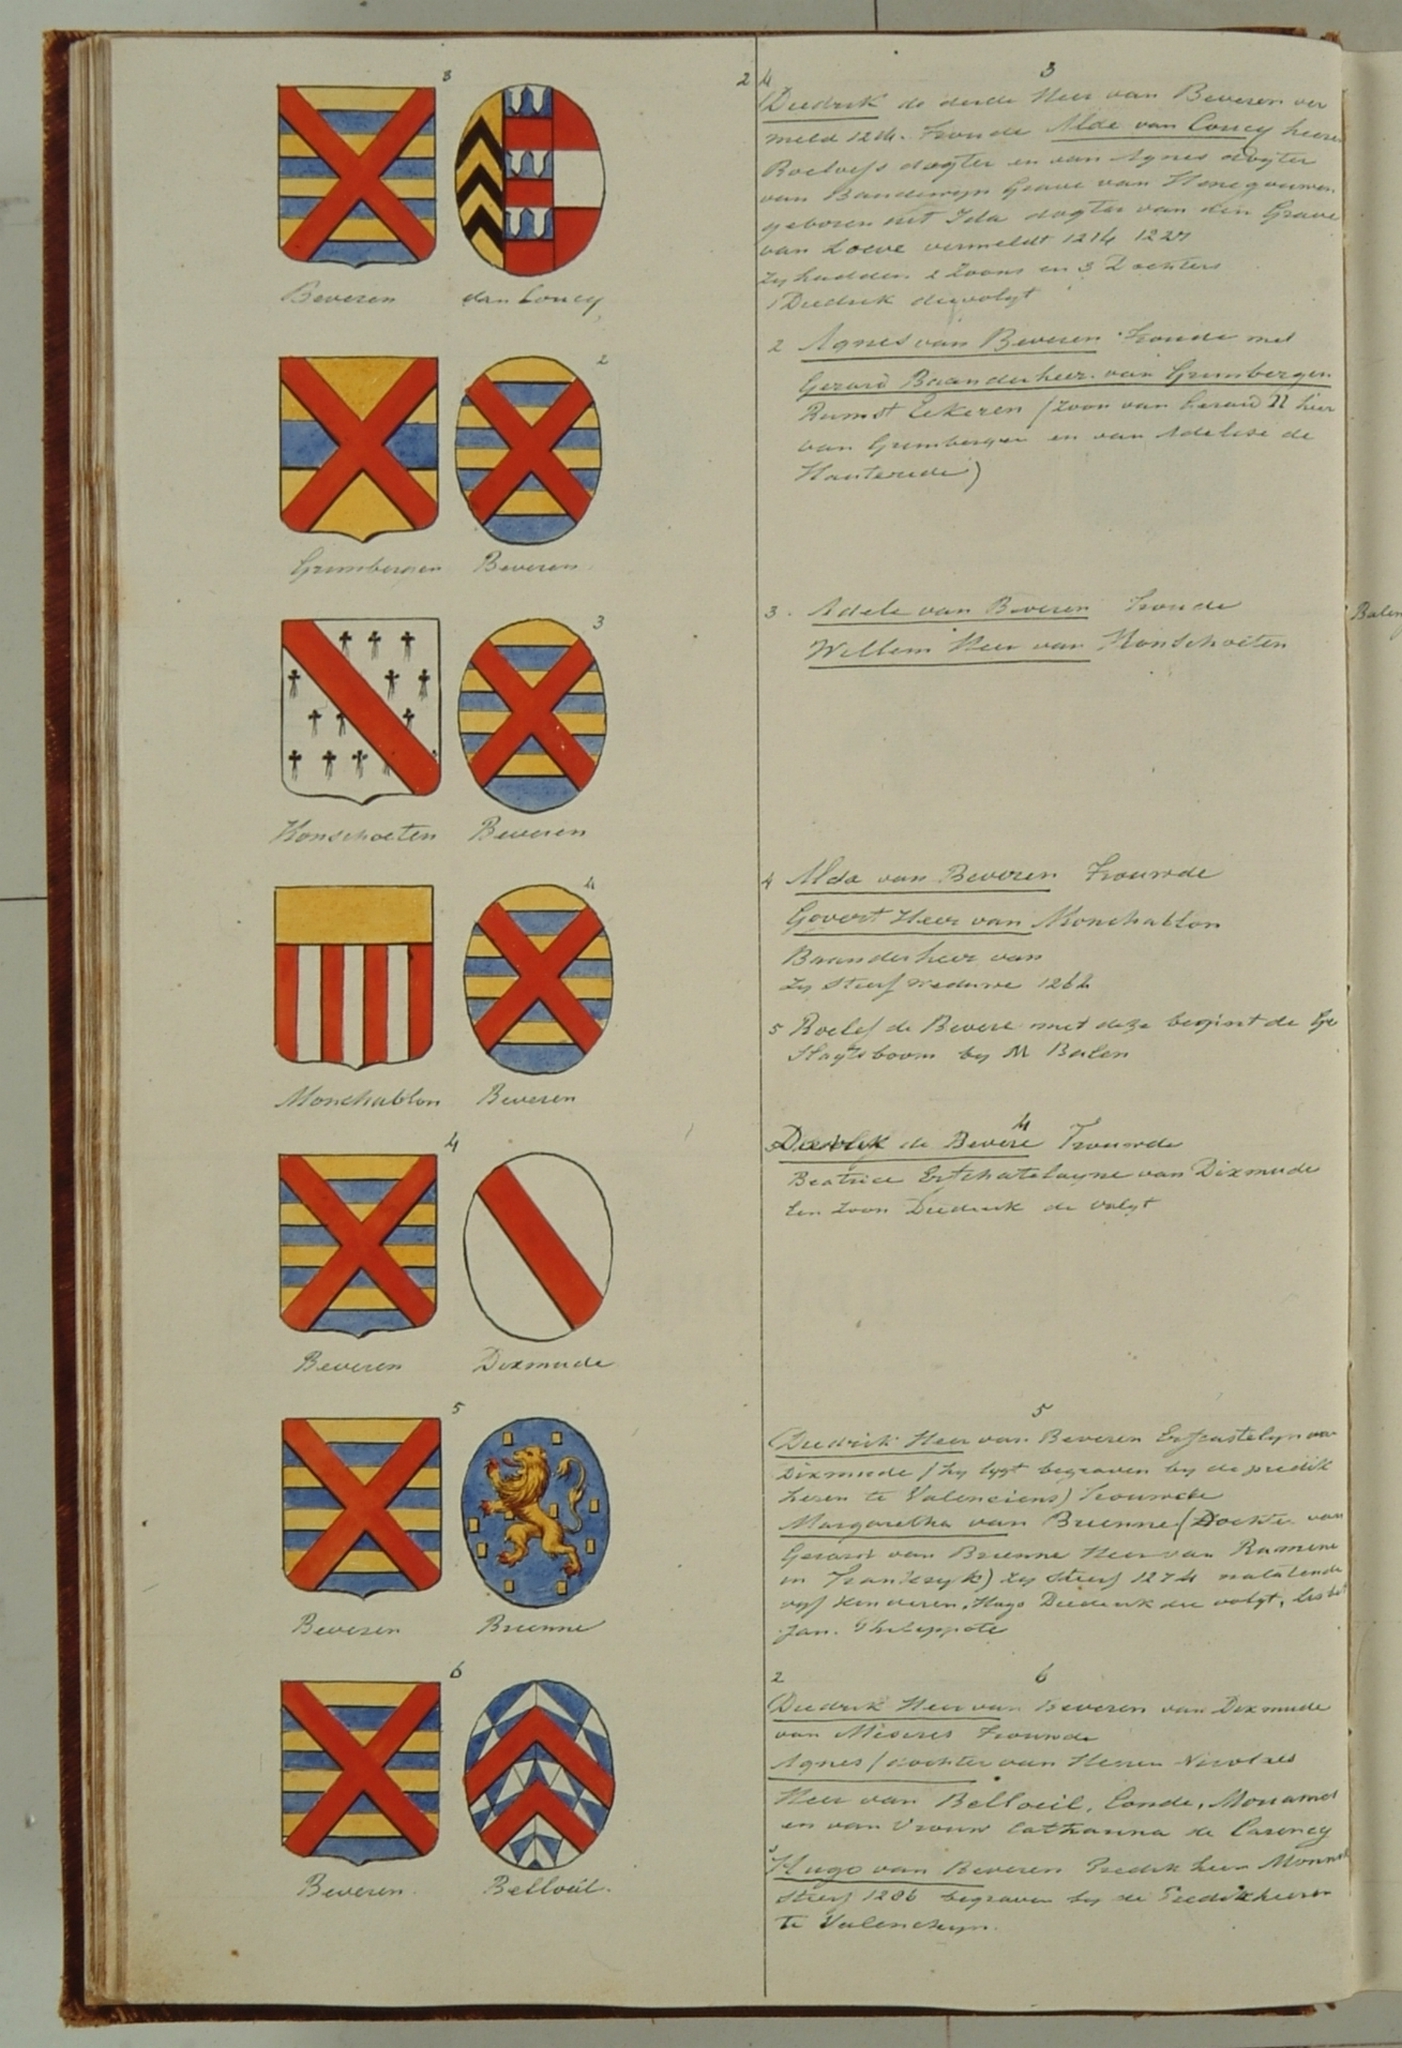 3
Beveren
van Coucy
2
Grimbergen
Beveren
3
Honschoeten
Beveren
4
Monchablon
Beveren
4
Beveren
Dixmude
5
Beveren
Brienne
6
Beveren.
Belloeil.
2 4
3
Diedrik de derde Heer van Beveren ver
meld 1214. Troude Alde van Coucy heeren
Roelofs dogter en van Agnes dogter
van Baudewyn Grave van Henegouwen
geboren uit Ida dogter van den Grave
van Loeve vermeldt 1214 1227
zy hadden 2 Zoons en 3 Dochters
1 Diedrik die volgt
2 Agnes van Beveren Troude met
Gerard Baanderheer van Grimbergen
Rumst Eekeren (zoon van Gerard II heer
van Grimbergen en van Adelise de
Hauterede)
3. Adele van Beveren Troude
Willem Heer van Honschoeten
Balen
4 Alda van Beveren Trouwde
Govert Heer van Monchablon
Baanderheer van
zy Sterf weduwe 1262
5 Roelof de Bevere met deze begint de Ge
Slagtsboom by M Balen
4
Diedrik de Bevere Trouwde
Beatrice Erfchatelayne van Dixmude
Een zoon Diedrik die volgt
5
Diedrik Heer van Beveren Erfcastelyn van
Dixmude (hy lygt begraven by de predik
heren te Valenciens) Trouwde
Margaretha van Brienne (Dochter van
Gerard van Brienne Heer van Ramerie
in Frankryk) zy Sterf 1274 nalatende
vyf kinderen, Hugo Diederik die volgt,
Jan. Philippote
2
6
Diedrik Heer van Beveren van Dixmude
van Miseres Trouwde
Agnes (dochter van Heeren Nicolaes
Heer van Belloeil, Conde, Monamel
en van Vrouw Catharina de Carency
3
Hugo van Beveren Predik heer
Sterf 1286 begraven by de Predikheeren
te Valenchyn.